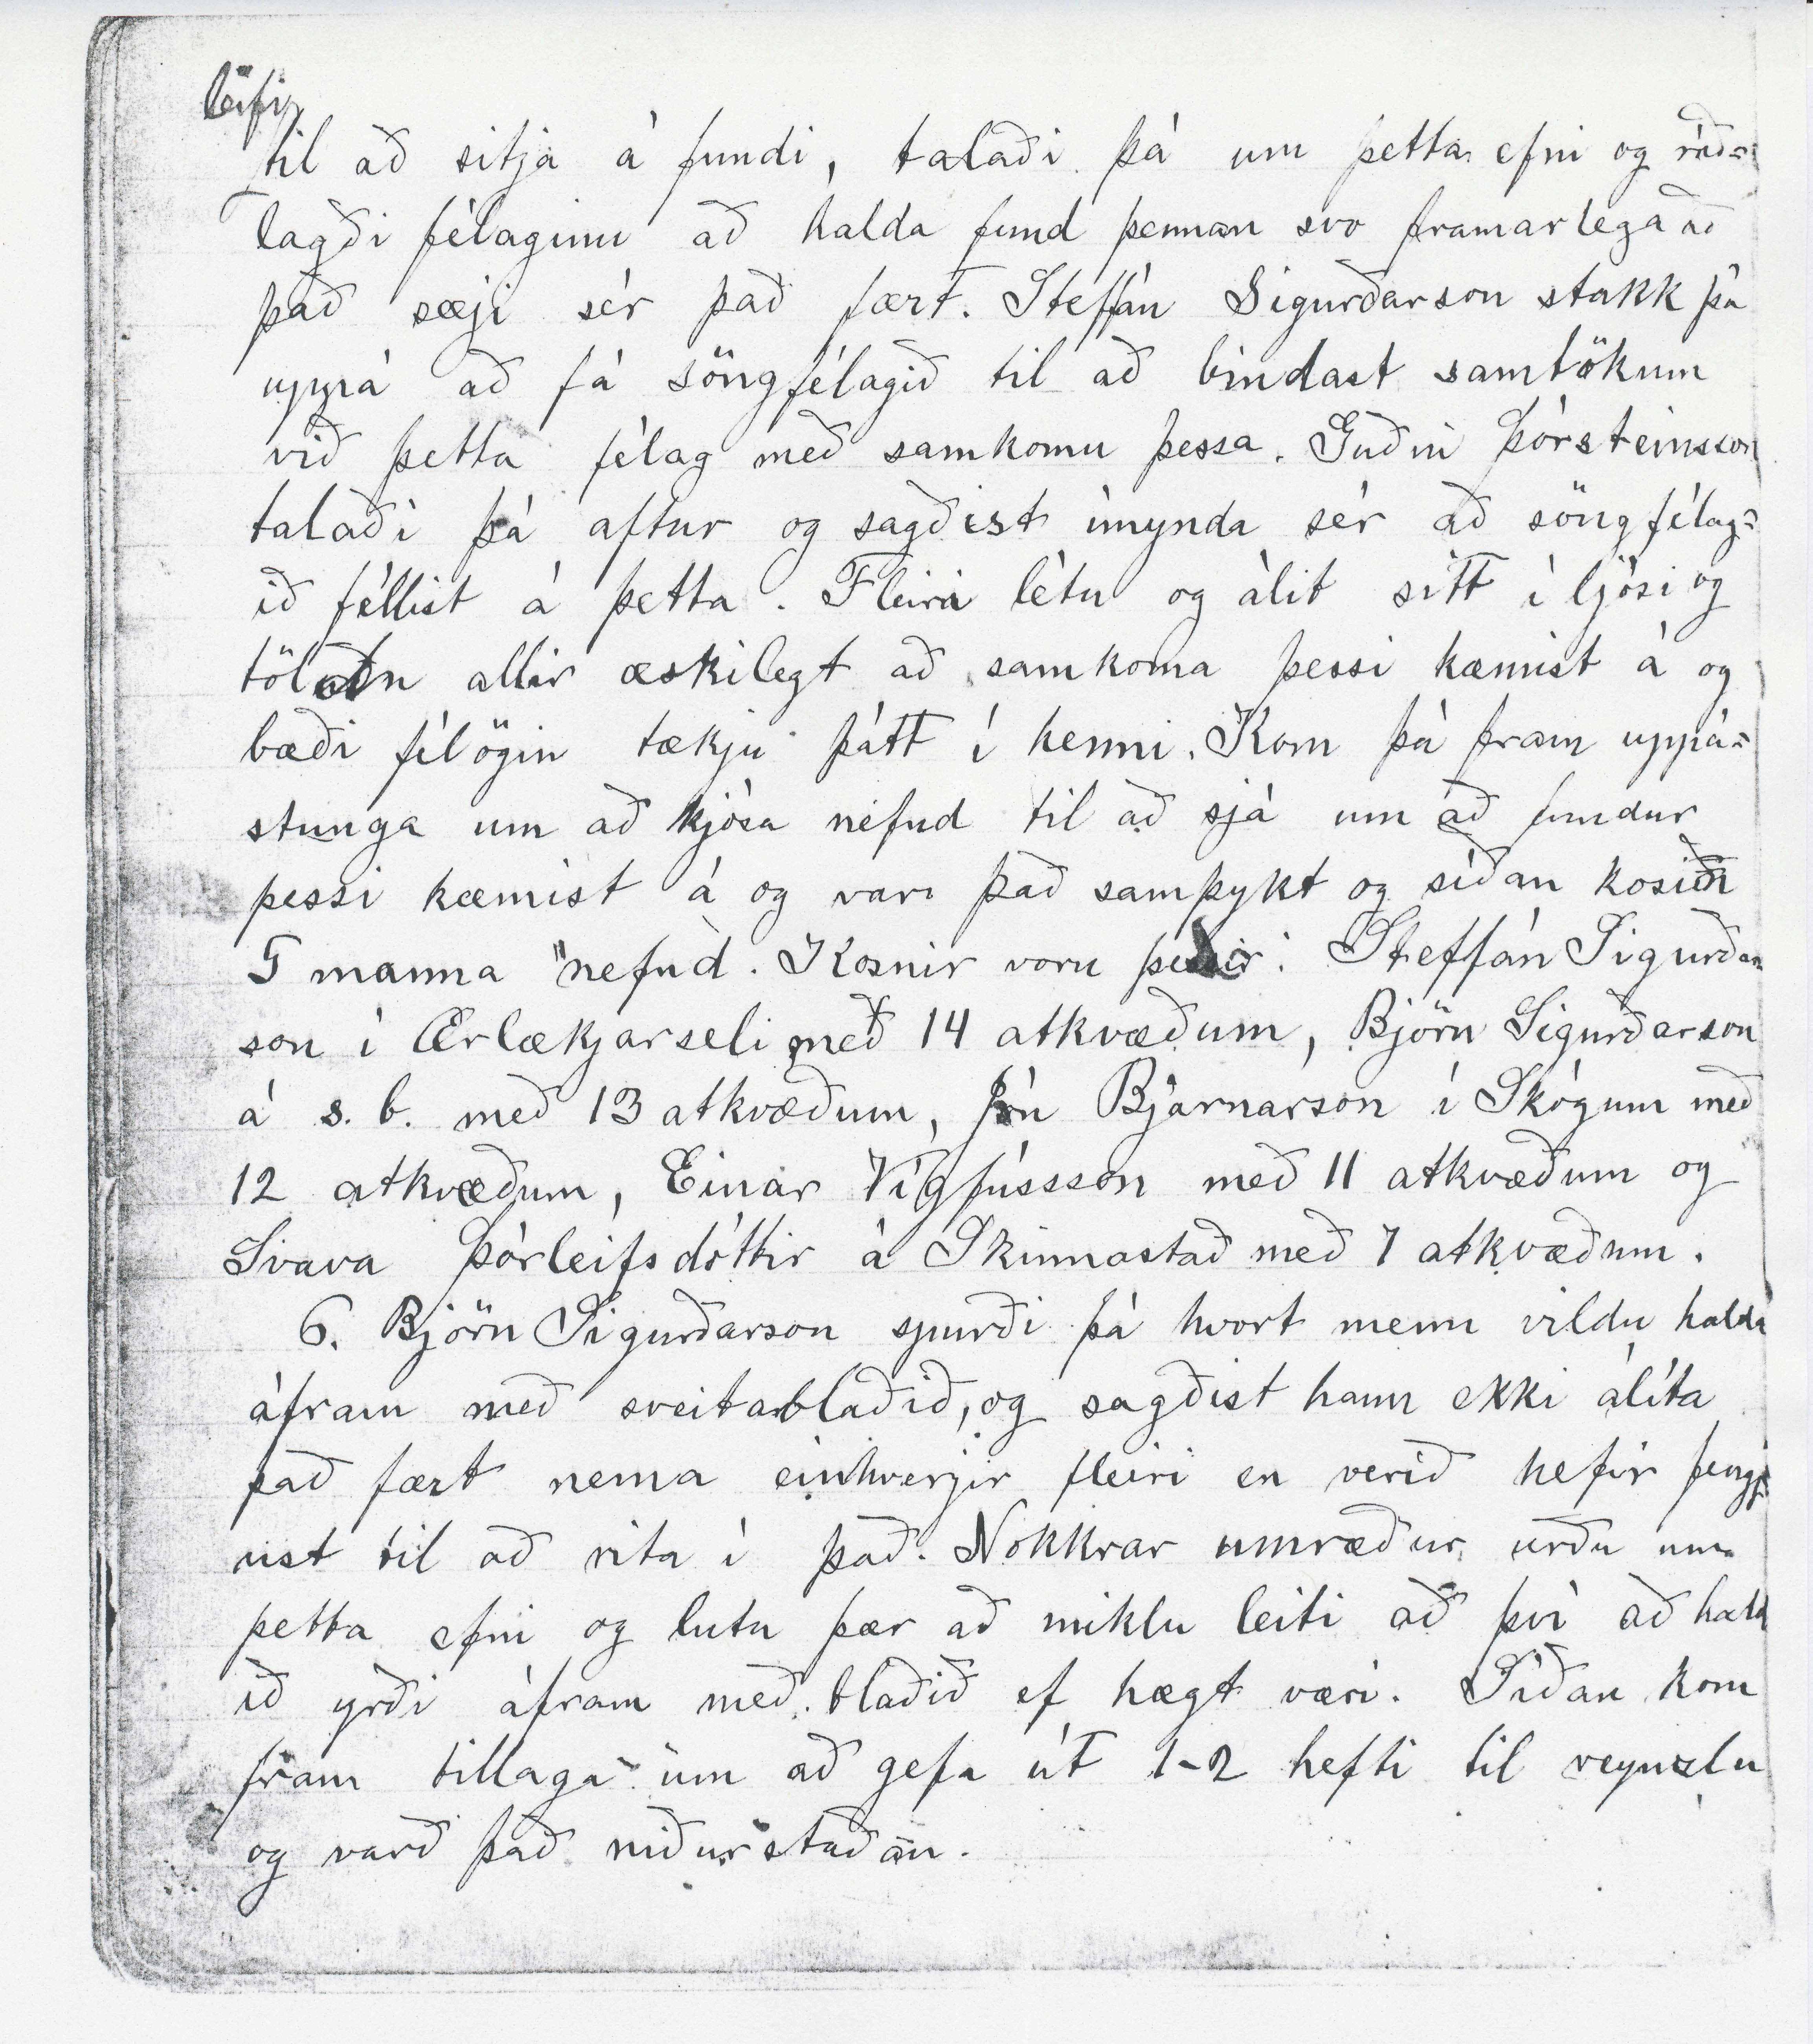 leifi
til að sitja á fundi, talaði þá um þetta efni og ráð=
lagði félaginu að halda fund þennan svo framarlega að
það sæji sér það fært. Steffán Sigurðarson stakk þá
uppá að fá söngfélagið til að bindast samtökum
við þetta félag með samkomu þessa. Guðni Þórsteinsson
talaði þá aftur og sagðist ímynda sér að söngfélag=
ið féllist á þetta. Fleiri létu og álit sitt í ljósi og
töldu allir æskilegt að samkoma þessi kæmist á og
bæði félögin tækju þátt í henni. Kom þá fram uppá=
stunga um að kjósa nefnd til að sjá um að fundur
þessi kæmist á og var það samþykt og síðan kosin
5 manna nefnd. Kosnir voru þessir: Steffán Sigurðar
son í Ærlækjarseli með 14 atkvæðum, Björn Sigurðarson
á s. b. með 13 atkvæðum, Jón Bjarnarson í Skógum með
12 atkvæðum, Einar Vígfússson með 11 atkvæðum og
Svava Þórleifsdóttir á Skinnastað með 7 atkvæðum.
6. Björn Sigurðarson spurði þá hvort menn vildu halda
áfram með sveitarblaðið, og sagðist hann ekki álíta
það fært nema einhverjir fleiri en verið hefir feng=
ust til að rita í það. Nokkrar umræður urðu um
þetta efni og lutu þær að miklu leiti að því að hald
ið yrði áfram með blaðið ef hægt væri. Síðan kom
fram tillaga um að gefa út 1-2 hefti til reynslu
og varð það niðurstaðan.